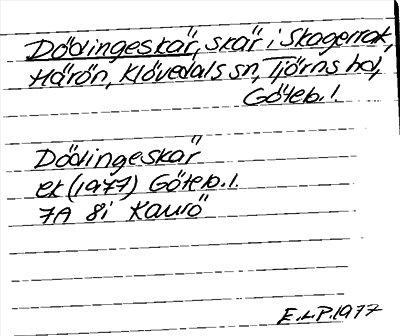 Dödingeskär, skär i Skagerrak,
Härön, Klövedals sn, Tjörns hd,
Göteb. l.
Dödingeskär
ek (1977) Göteb. l.
7A 8i Kaurö
E.L.P. 1977